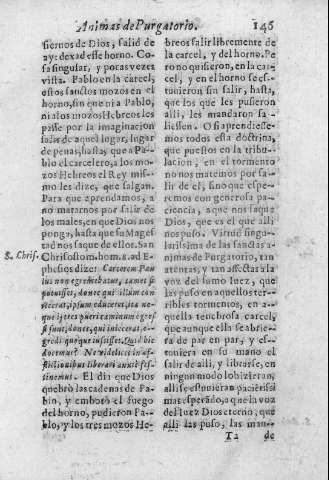 Animas de Purgatorio. 146
siervos de Dios, salid de
ay: dexad esse horno. Co-
sa singular, y pocas vezes
vista. Pablo en la carcel,
estos santos mozos en el
horno, sin que ni a Pablo,
ni a los mozos Hebreos les
passe por la imaginacion
salir de aquel lugar, lugar
de penas, hasta, que a Pa-
blo el carcelero, a los mo-
zos Hebreos el Rey mis-
mo les dize, que salgan.
Para que aprendamos, a
no matarnos por salir de
los males, en que Dios nos
ponga, hasta q̃ su Mages
tad nos saque de ellos. San
S. Chris.
Chrisostom. hom. 8. ad E-
phesios dize: Carcerem Pau
lus non egrediebatur, tametsi
potuisset, donec qui illum con
iecerat, ipsum educeret, ita ne-
que
si sunt, donec, qui iniecerat, e-
gredi quoque iussisset. Quid hic
docemur? Ne videlicet in af-
flictionibus liberari anxie fes-
tinemus. El dia que Dios
quebrò las cadenas de Pa-
blo, y embotò el fuego
del horno, pudieron Pa-
blo, y los tres mozos He-
breos salir libremente de
la carcel, y del horno. Pe
ro no quisieron, en la car-
cel, y en el horno se es-
tuvieron sin salir, hasta,
que los que les pusieron
alli, les mandaron sa-
liessen. O si aprendiesse-
mos todos esta doctrina,
que puestos en la tribu-
lacion, en el tormento
no nos matemos por sa-
lir de el, sino que espe-
remos con generosa pa-
ciencia, a que nos saque
Dios, que es el que alli
nos puso. Virtud singu-
larissima de las santas a-
nimas de Purgatorio, tan
atentas, y tan afectas a la
voz del sumo Iuez, que
las puso en aquellos ter-
ribles tormentos, en a-
quella tenebrosa carcel,
que aunque ella se abrie-
ra de par en par, y es-
tuviera en su mano el
salir de alli, y librarse, en
ningun modo lo hizieran,
alli se estuvieran pacientissi
mas, esperado, a que la voz
del Iuez Dios eterno, que
alli las puso, las man-
Ta de